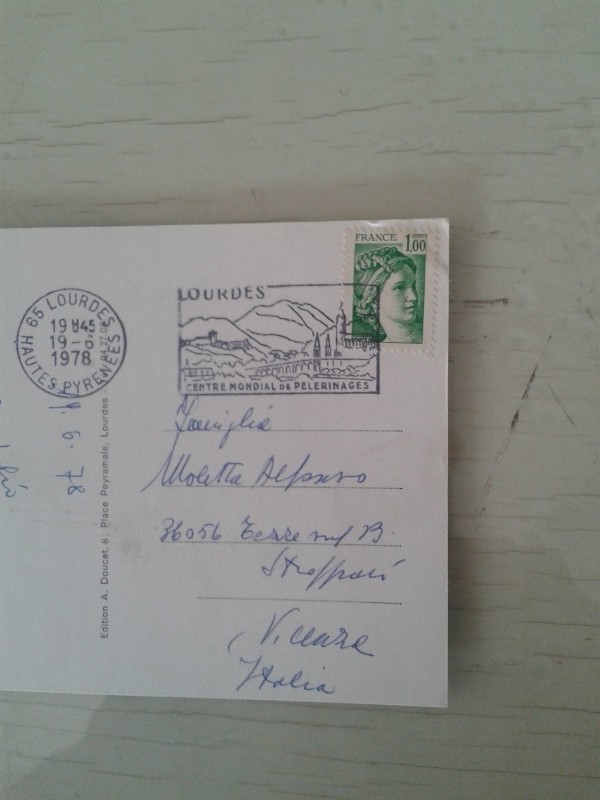 FRANCE 1,00
LOURDES
65 LOURDES
19H45
19-6
1978
HAUTES PYRENEES
CENTRE MONDIAL DE PELERINAGES
Edition A. Doucet, 8, Place Peyramale, Lourdes
9. 6. 78
Famiglia
Moletta
36056 Tezze sul B.
Stroppari
Vicenza
Italia